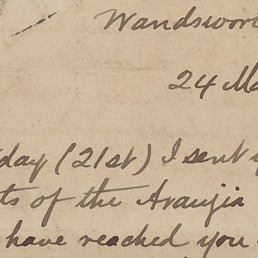 Wandswor
24 Ma
day (21st) I sent y
ts of the Araujia
have reached you